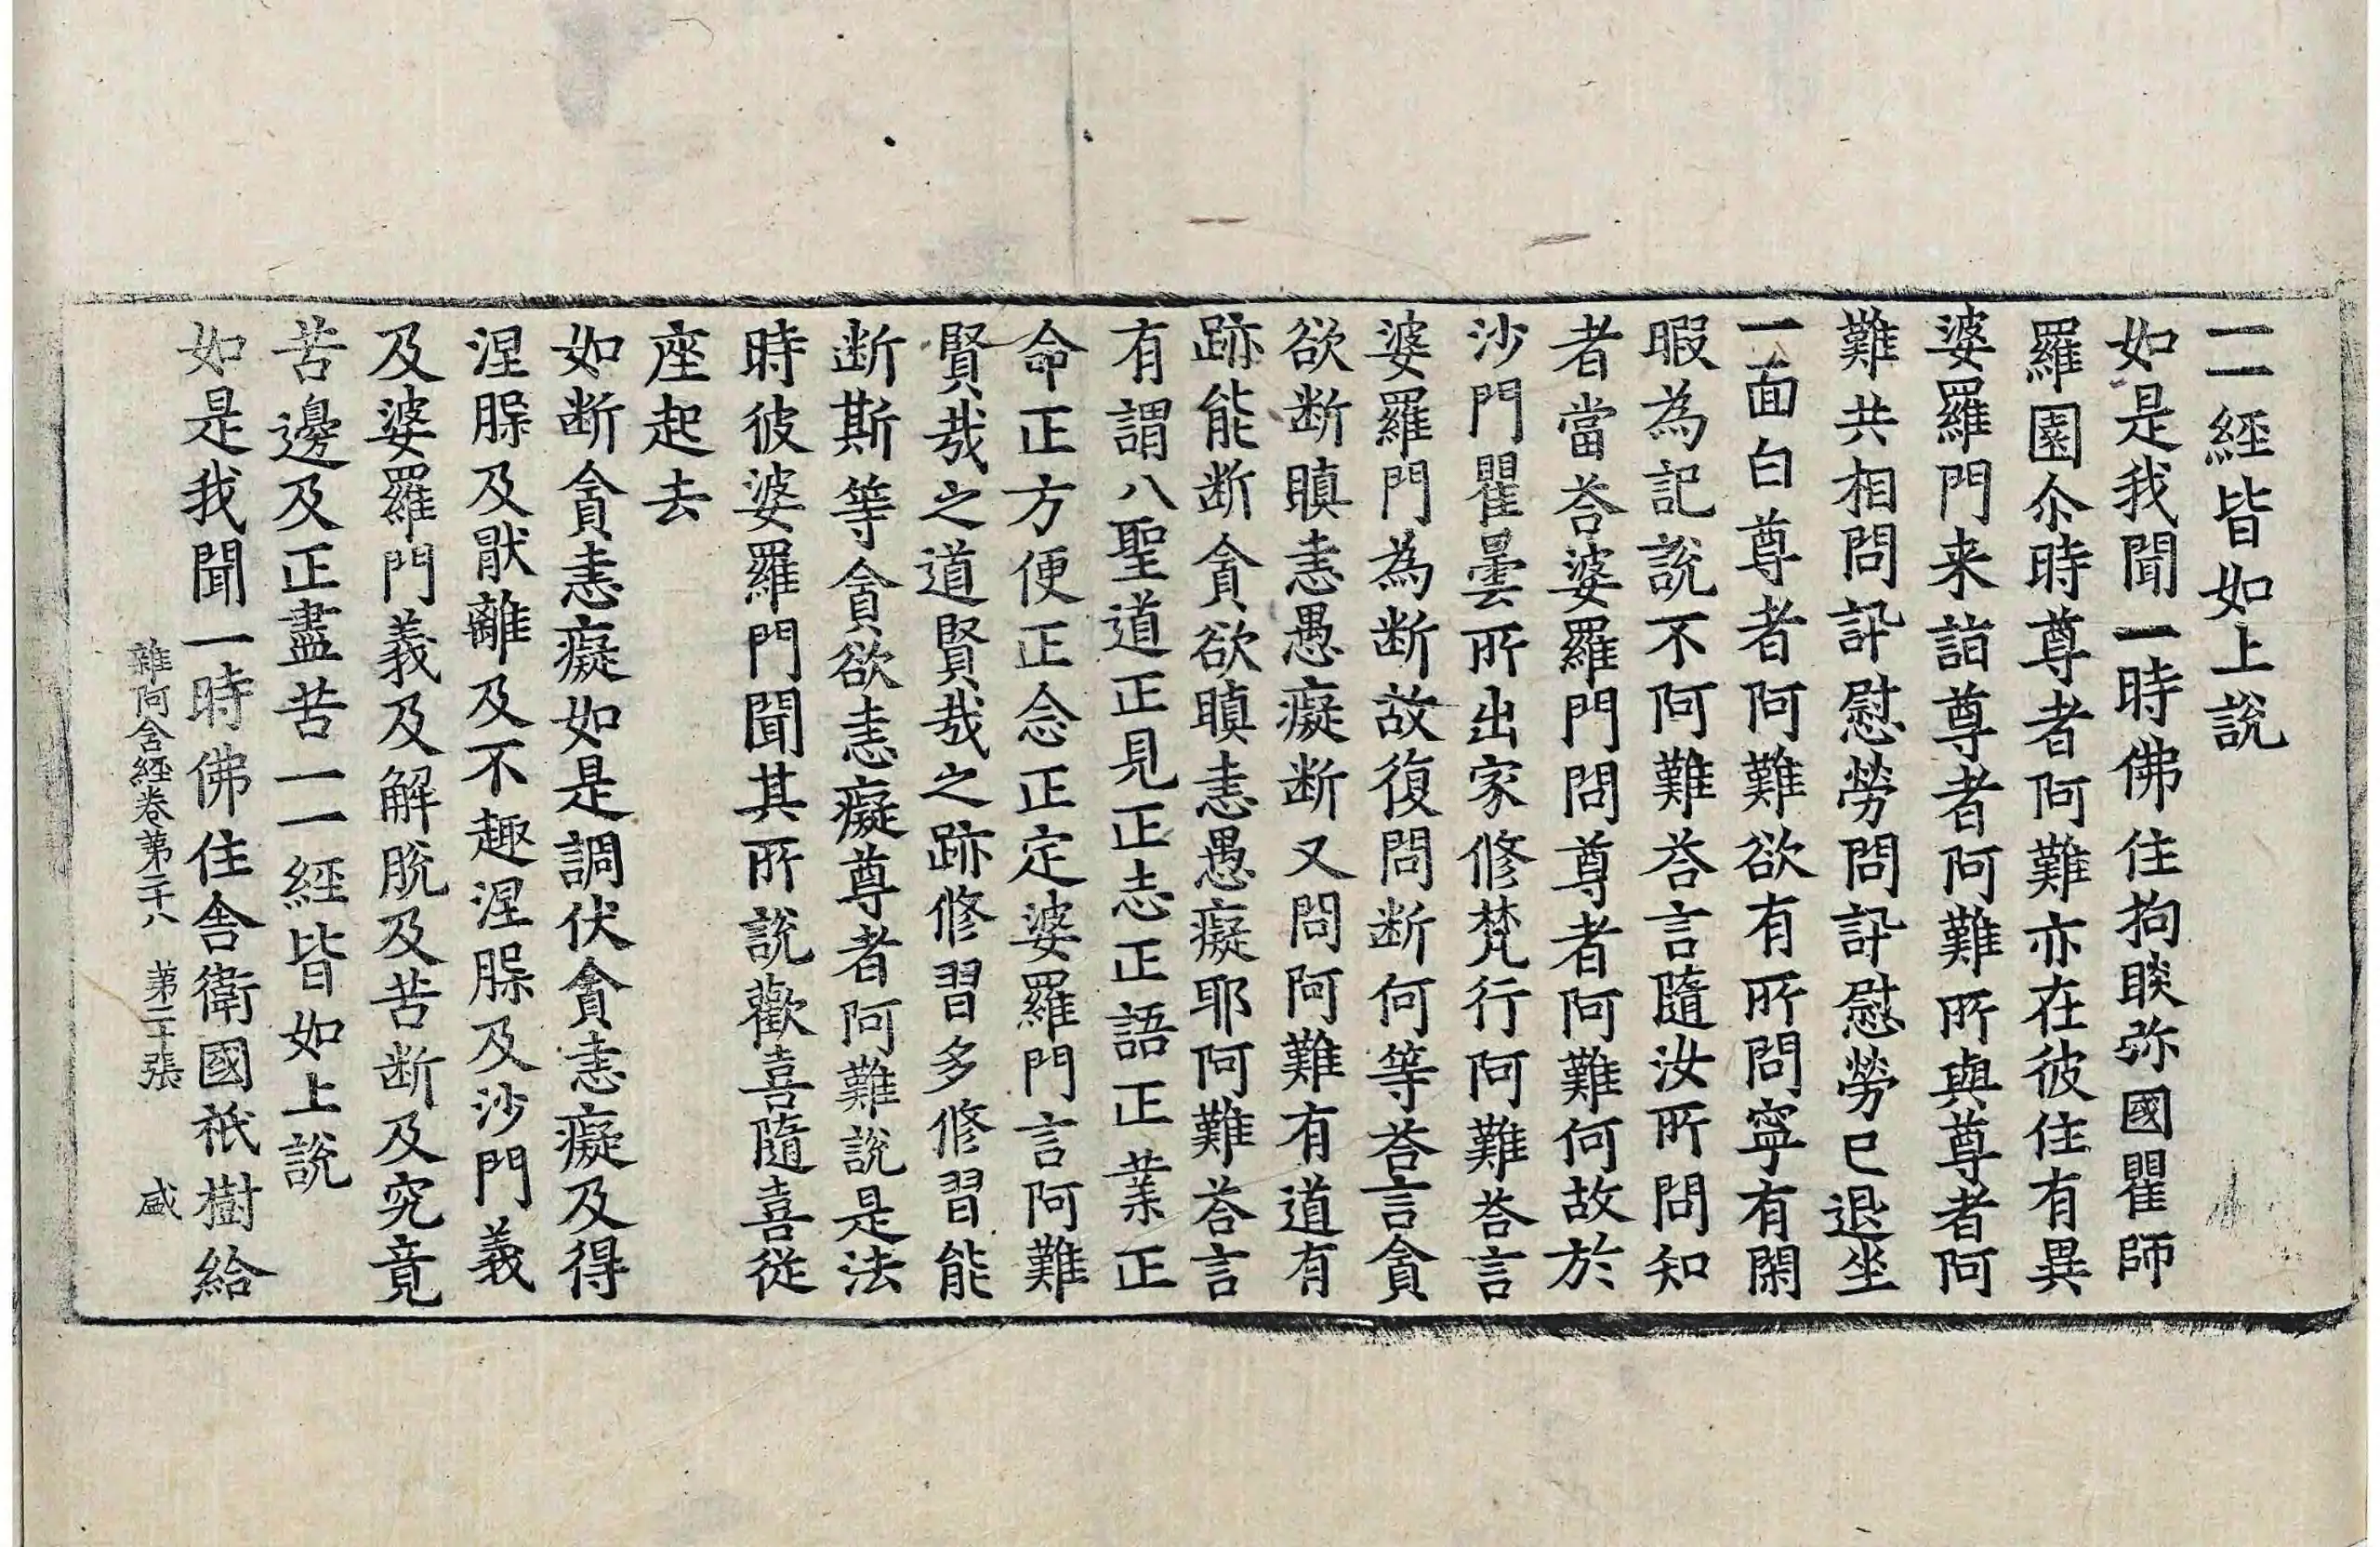 一一經皆如上說
如是我聞一時佛住拘睒弥國瞿師
羅園尒時尊者阿難亦在彼住有異
婆羅門来詣尊者阿難所與尊者阿
難共相問訊慰勞問訊慰勞已退坐
一面白尊者阿難欲有所問寧有閑
暇為記說不阿難荅言隨汝所問知
者當荅婆羅門問尊者阿難何故於
沙門瞿曇所出家修梵行阿難荅言
婆羅門為断故復問断何等荅言貪
欲断瞋恚愚癡断又問阿難有道有
跡能断貪欲瞋恚愚癡耶阿難荅言
有謂八聖道正見正志正語正業正
命正方便正念正定婆羅門言阿難
賢哉之道賢哉之跡修習多修習能
断斯等貪欲恚癡尊者阿難說是法
時彼婆羅門聞其所說歡喜隨喜従
座起去
如断貪恚癡如是調伏貪恚癡及得
涅槃及猒離及不趣涅槃及沙門義
及婆羅門義及解脫及苦断及究竟
苦邊及正盡苦一一經皆如上說
如是我聞一時佛住舎衛國祇樹給
雜阿含經卷第二十八 第二十張 盛